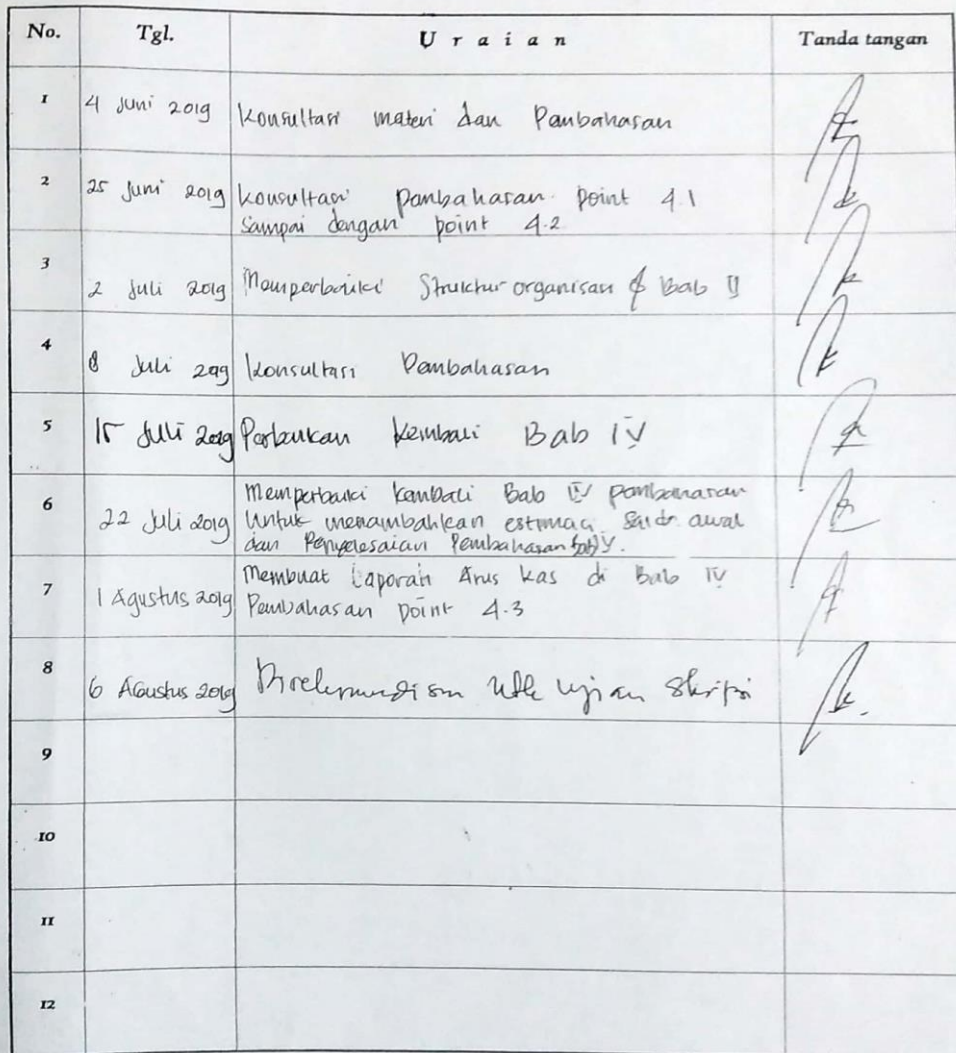 No. Tgl. Uraian Tanda tangan
1 4 Juni 2019 Konsultasi materi dan Pembahasan
2 25 Juni 2019 Konsultasi pembahasan point 4.1
Sampai dengan point 4.2
3 2 Juli 2019 Memperbaiki Struktur organisasi & Bab II
4 8 Juli 2019 Konsultasi Pembahasan
5 15 Juli 2019 Perbaikan Kembali Bab IV
6 22 Juli 2019 Memperbaiki kembali Bab IV pembahasan
Untuk menambahkan estimasi saldo awal
dan Penyelesaian Pembahasan bab V.
7 1 Agustus 2019 Membuat Laporan Arus Kas di Bab IV
Pembahasan point 4.3
8 6 Agustus 2019 Direkomendasikan utk ujian skripsi
9
10
11
12